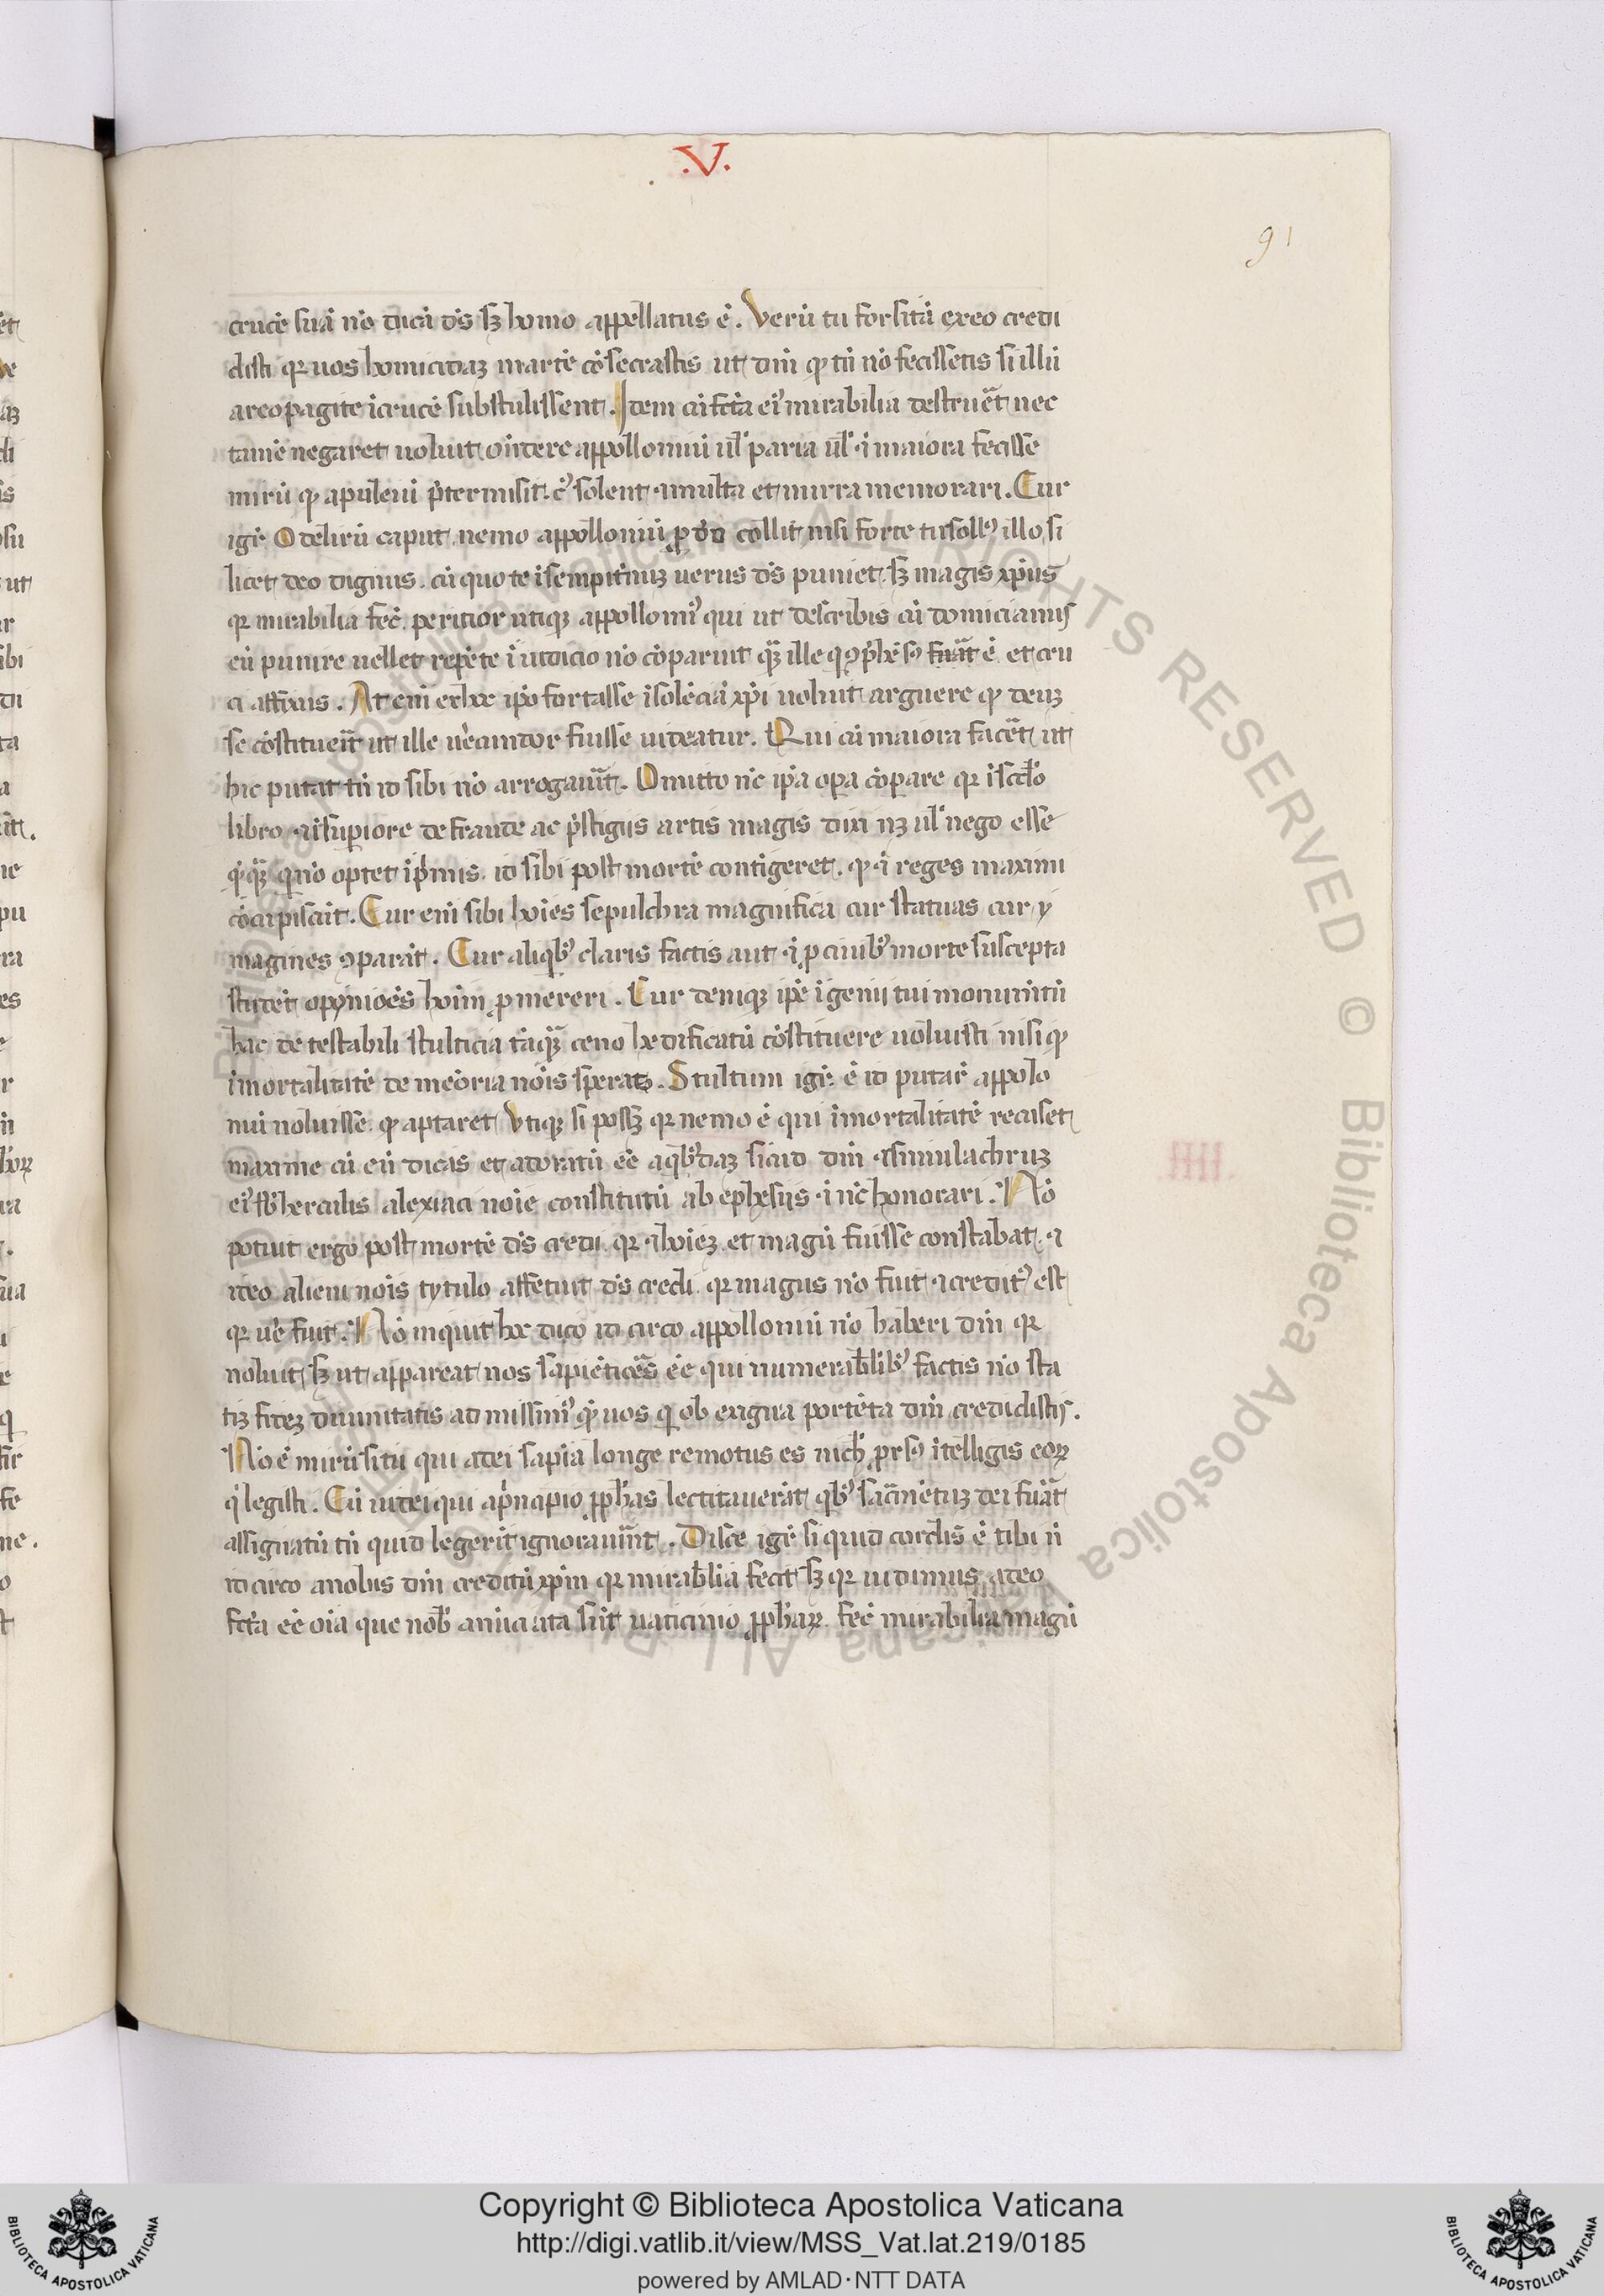 .V.
91
crucē suā nō dicā ds̄ sꝫ homo appellatus ē. Verū tu forsitā ex eo credi
disti qꝛ uos homicidaꝫ martē cōsecrastis ut dm̄ qꝫ tn̄ nō fecissetis si illū
areopagite ī crucē substulissent. Idem cū fc̄ta eiꝰ mirabilia destruēt nec
tamē negaret uoluit on̄dere appollonuiū ul̄ paria ul̄ ⁊ maiora fecisse
mirū qꝫ apuleui p̄termisit cꝰ solent ⁊ multa et mirra memorari. Cur
igr̄ O delirū caput nemo appolloniū ꝓ do collit nisi forte tu sollꝰ illo si
licet deo dignus. cū quo te ī sempit̄nuꝫ uerus ds̄ puniet. sꝫ magis xp̄us
qꝛ mirabilia fec̄. peritior utiqꝫ appolloniꝰ qui ut describis cū domicianus
eū punire uellet repēte ī iudicio nō cōparuit qꝫ̄ ille q ꝯp̄hēsꝰ fuāt ē et cru
ci affixus. At eni ex hoc ip̄o fortasse īsolēciā xp̄i uoluit arguere qꝫ deuꝫ
se cōstitueīt ut ille uēcundor fuisse uideatur. Qui cū maiora facēt ut
hic putat tn̄ id sibi nō arrogauīt. Omitto nc̄ ip̄a oꝑa cōparare qꝛ ī scd̄o
libro ⁊ ī suꝑiore de fraude ac p̄stigiis artis magis dixi nꝫ ul̄ nego esse
q̄qꝫ̄ q nō optet īp̄mis id sibi post mortē contigeret. qꝫ ⁊ reges maximi
cōcupiscūt. Cur eni sibi hoīes sepulchra magnifica cur statuas cur y
magines ꝯparāt. Cur aliqbꝰ claris factis aut ⁊ ꝓ ciuibꝰ morte suscepta
studēt opynioēs hoīm ꝓmereri. Cur deniqꝫ ip̄e īgenij tui monumtū
hac de testabili stulticia tāqꝫ̄ ceno hedificatū cōstituere uoluisti nisi qꝫ
īmortalitatē de meōria noīs speras. Stultum igr̄ ē id putar̄ appolo
nui noluisse qꝫ aptaret Utiqꝫ si possꝫ qꝛ nemo ē qui īmortalitatē recuset
maxime cū eū dicas et adoratū eē a qbꝰdaꝫ sicud dm̄ ⁊ simulachruꝫ
eiꝰ sb̄ herculis alexiaci noīe constitutū ab ephesijs ⁊ nc̄ honorari. Nō
potuit ergo post mortē ds̄ credi qꝛ ⁊ hoīeꝫ et magū fuisse constabat ⁊
ideo alieni noīs tytulo affectuit ds̄ credi qꝛ magus nō fuit ⁊ creditꝰ est
qꝛ ue fuit. Nō inquit hoc dico id circo appollonui nō haberi dm̄ qꝛ
noluit sꝫ ut appareat nos sapiēticēs eē qui numerablibꝰ factis nō sta
tiꝫ fideꝫ diuinitatis ad missimꝰ q̄ uos q ob exigua portēta dm̄ credidistis.
Nō ē mirū si tu qui a dei sapia longe remotus es nich̄ ꝓrsꝰ ītelligis eoꝝ
q̄ legisti. Cū iudei qui a p̄ncipio ꝓph̄as lectitauerāt qbꝰ sac̄mētuꝫ dei fuāt
assignatū tn̄ quid legerīt ignorauīnt. Disce igr̄ si quid cordis ē tibi n̄
id circo a nobis dm̄ creditū xp̄m qꝛ mirablia fecit sꝫ qꝛ uidimus ī eo
fc̄ta eē oīa que nob̄ anūciata sūt uaticinio ꝓph̄aꝝ. fec̄ mirabilia magū
Copyright © Biblioteca Apostolica Vaticana
http://digi.vatlib.it/view/MSS_Vat.lat.219/0185
powered by AMLAD·NTT DATA